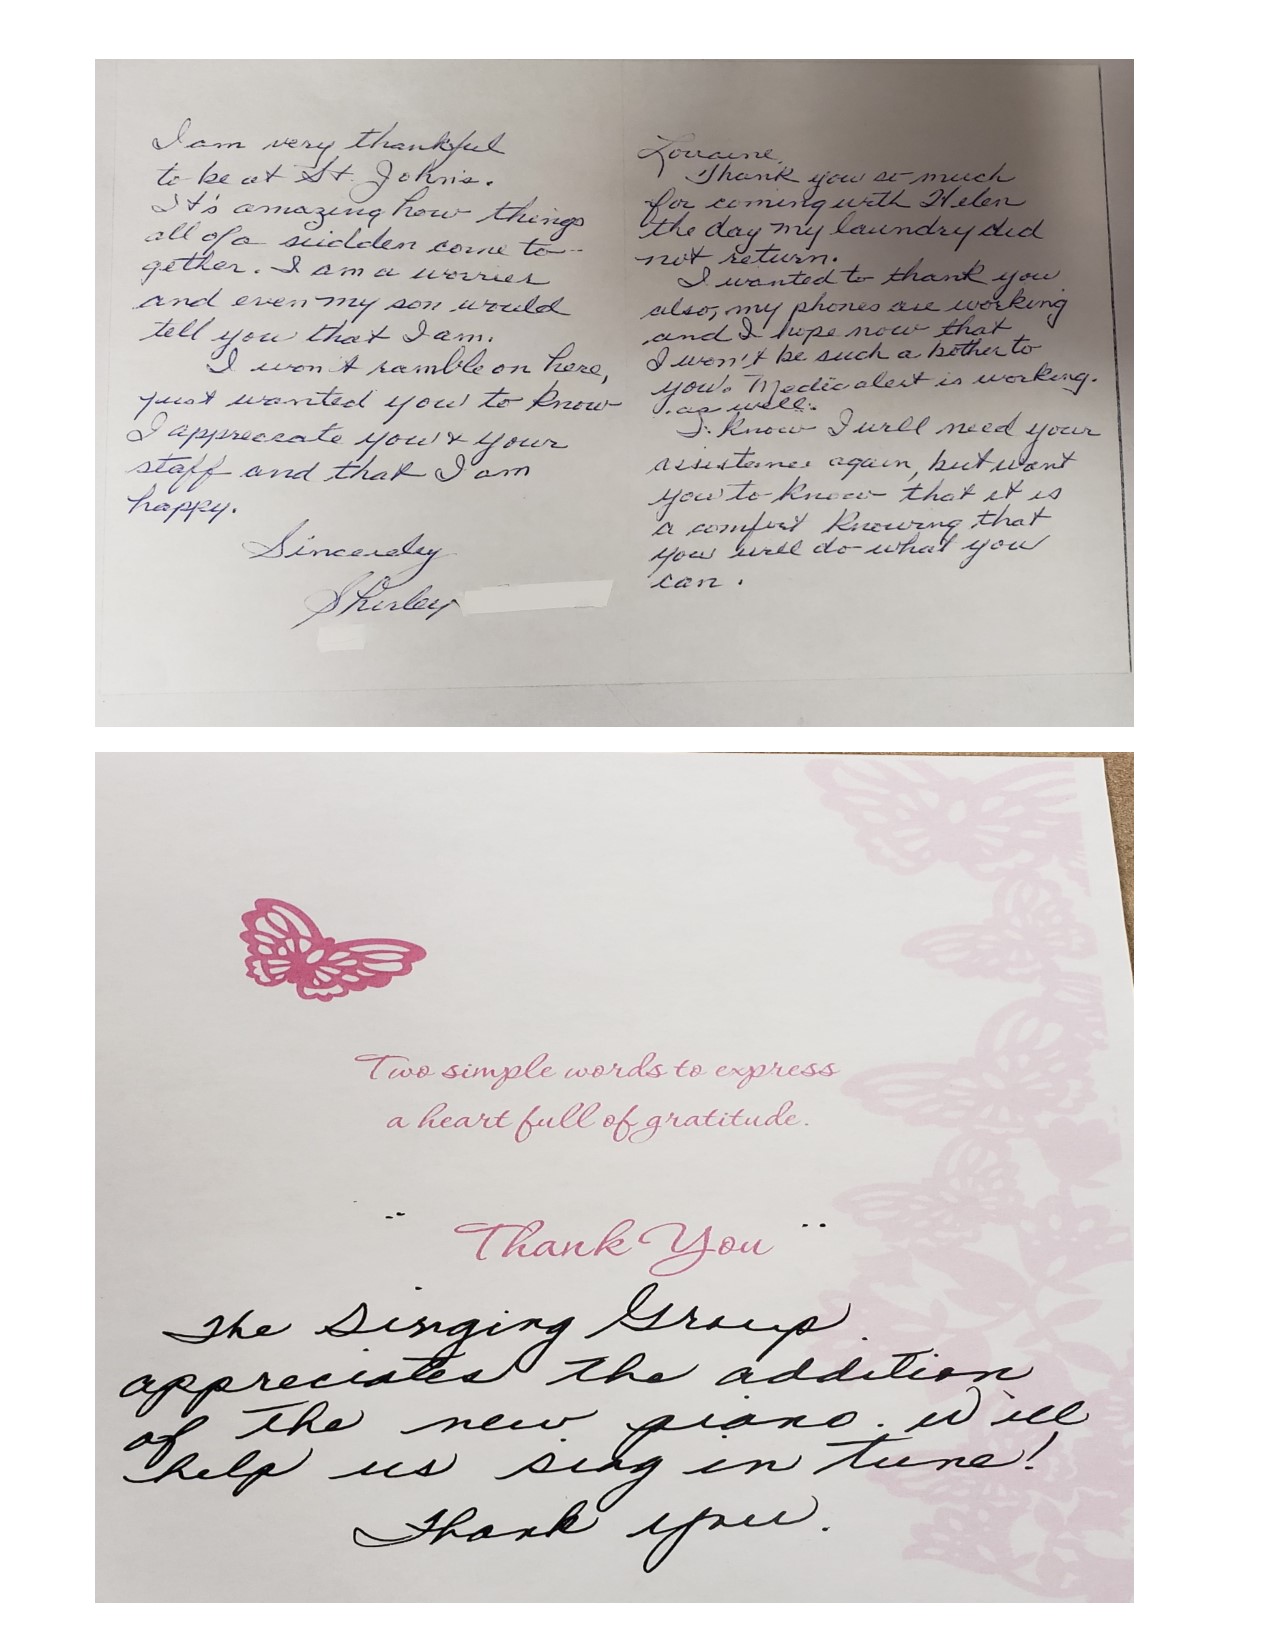 I am very thankful
to be at St. John's.
It's amazing how things
all of a sudden come to-
gether. I am a worrier
and even my son would
tell you that I am.
I won't ramble on here,
just wanted you to know
I appreciate you & your
staff and that I am
happy.
Sincerely
Shirley
Lorraine,
Thank you so much
for coming with Helen
the day my laundry did
not return.
I wanted to thank you
also, my phones are working
and I hope now that
I won't be such a bother to
you. Medic alert is working.
as well.
I know I will need your
assistance again, but want
you to know that it is
a comfort knowing that
you will do what you
can.
Two simple words to express
a heart full of gratitude.
"Thank You"
The Singing Group
appreciates the addition
of the new piano. Will
help us sing in tune!
Thank you.